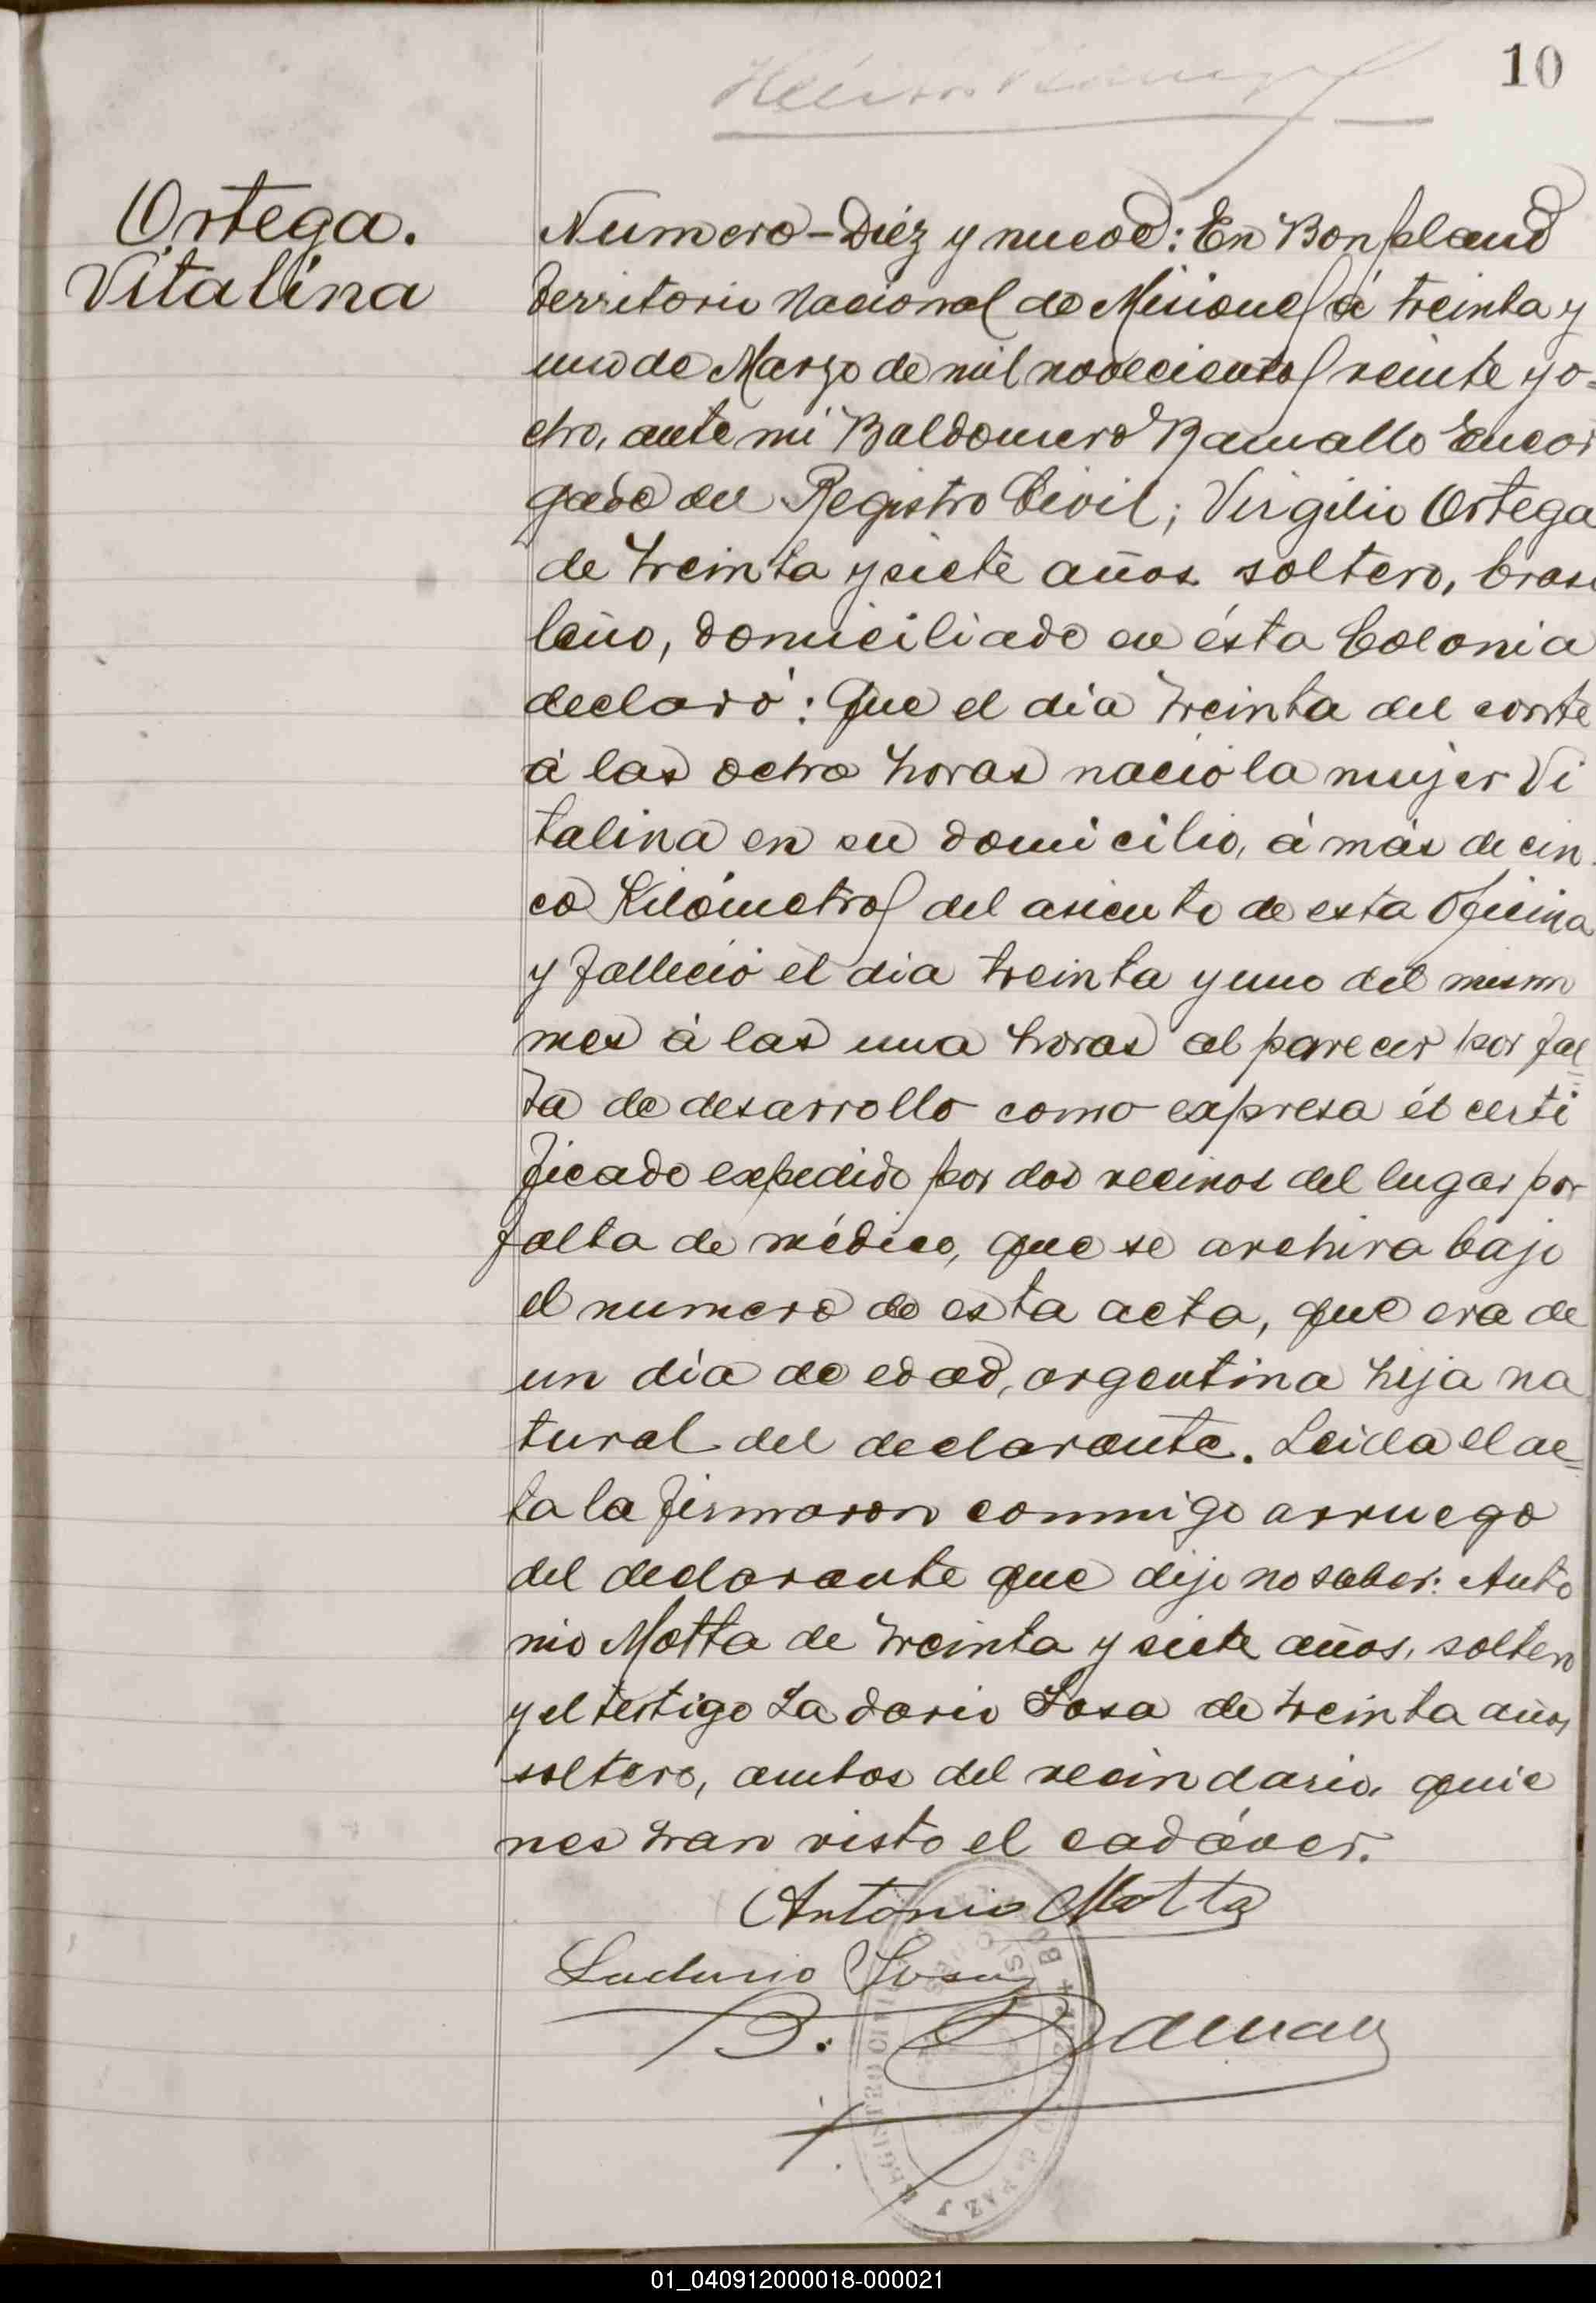 10
Ortega.
Vitalina
Numero-Diéz y nueve: En Bonpland
Territorio Nacional de Misiones á treinta y
uno de Marzo de mil novecientos veinte y o=
cho, ante mi Baldomero Ramallo Encar
gado del Registro Civil; Virgilio Ortega
de treinta y siete años soltero, brasi
leño, domiciliado en ésta Colonia
declaró: Que el dia treinta del corrte
á las ocho horas nació la mujer Vi
talina en su domicilio, á más de cin
co Kilómetros del asiento de esta Oficina
y falleció el dia treinta y uno del mismo
mes á las una horas al parecer por fal=
ta de desarrollo como expresa él certi
ficado expedido por dos vecinos del lugar por
falta de médico, que se archiva bajo
el numero de esta acta, que era de
un día de edad, argentina hija na
tural del declarante. Leida el ac=
ta la firmaron conmigo arruego
del declarante que dijo no saber: Anto
nio Motta de treinta y siete años, soltero
y el testigo Ladario Sosa de treinta años
soltero, ambos del vecindario, quie
nes han visto el cadáver.
Antonio Motta
Ladario Sosa
B. Ramallo
REGISTRO CIVIL
01_040912000018-000021